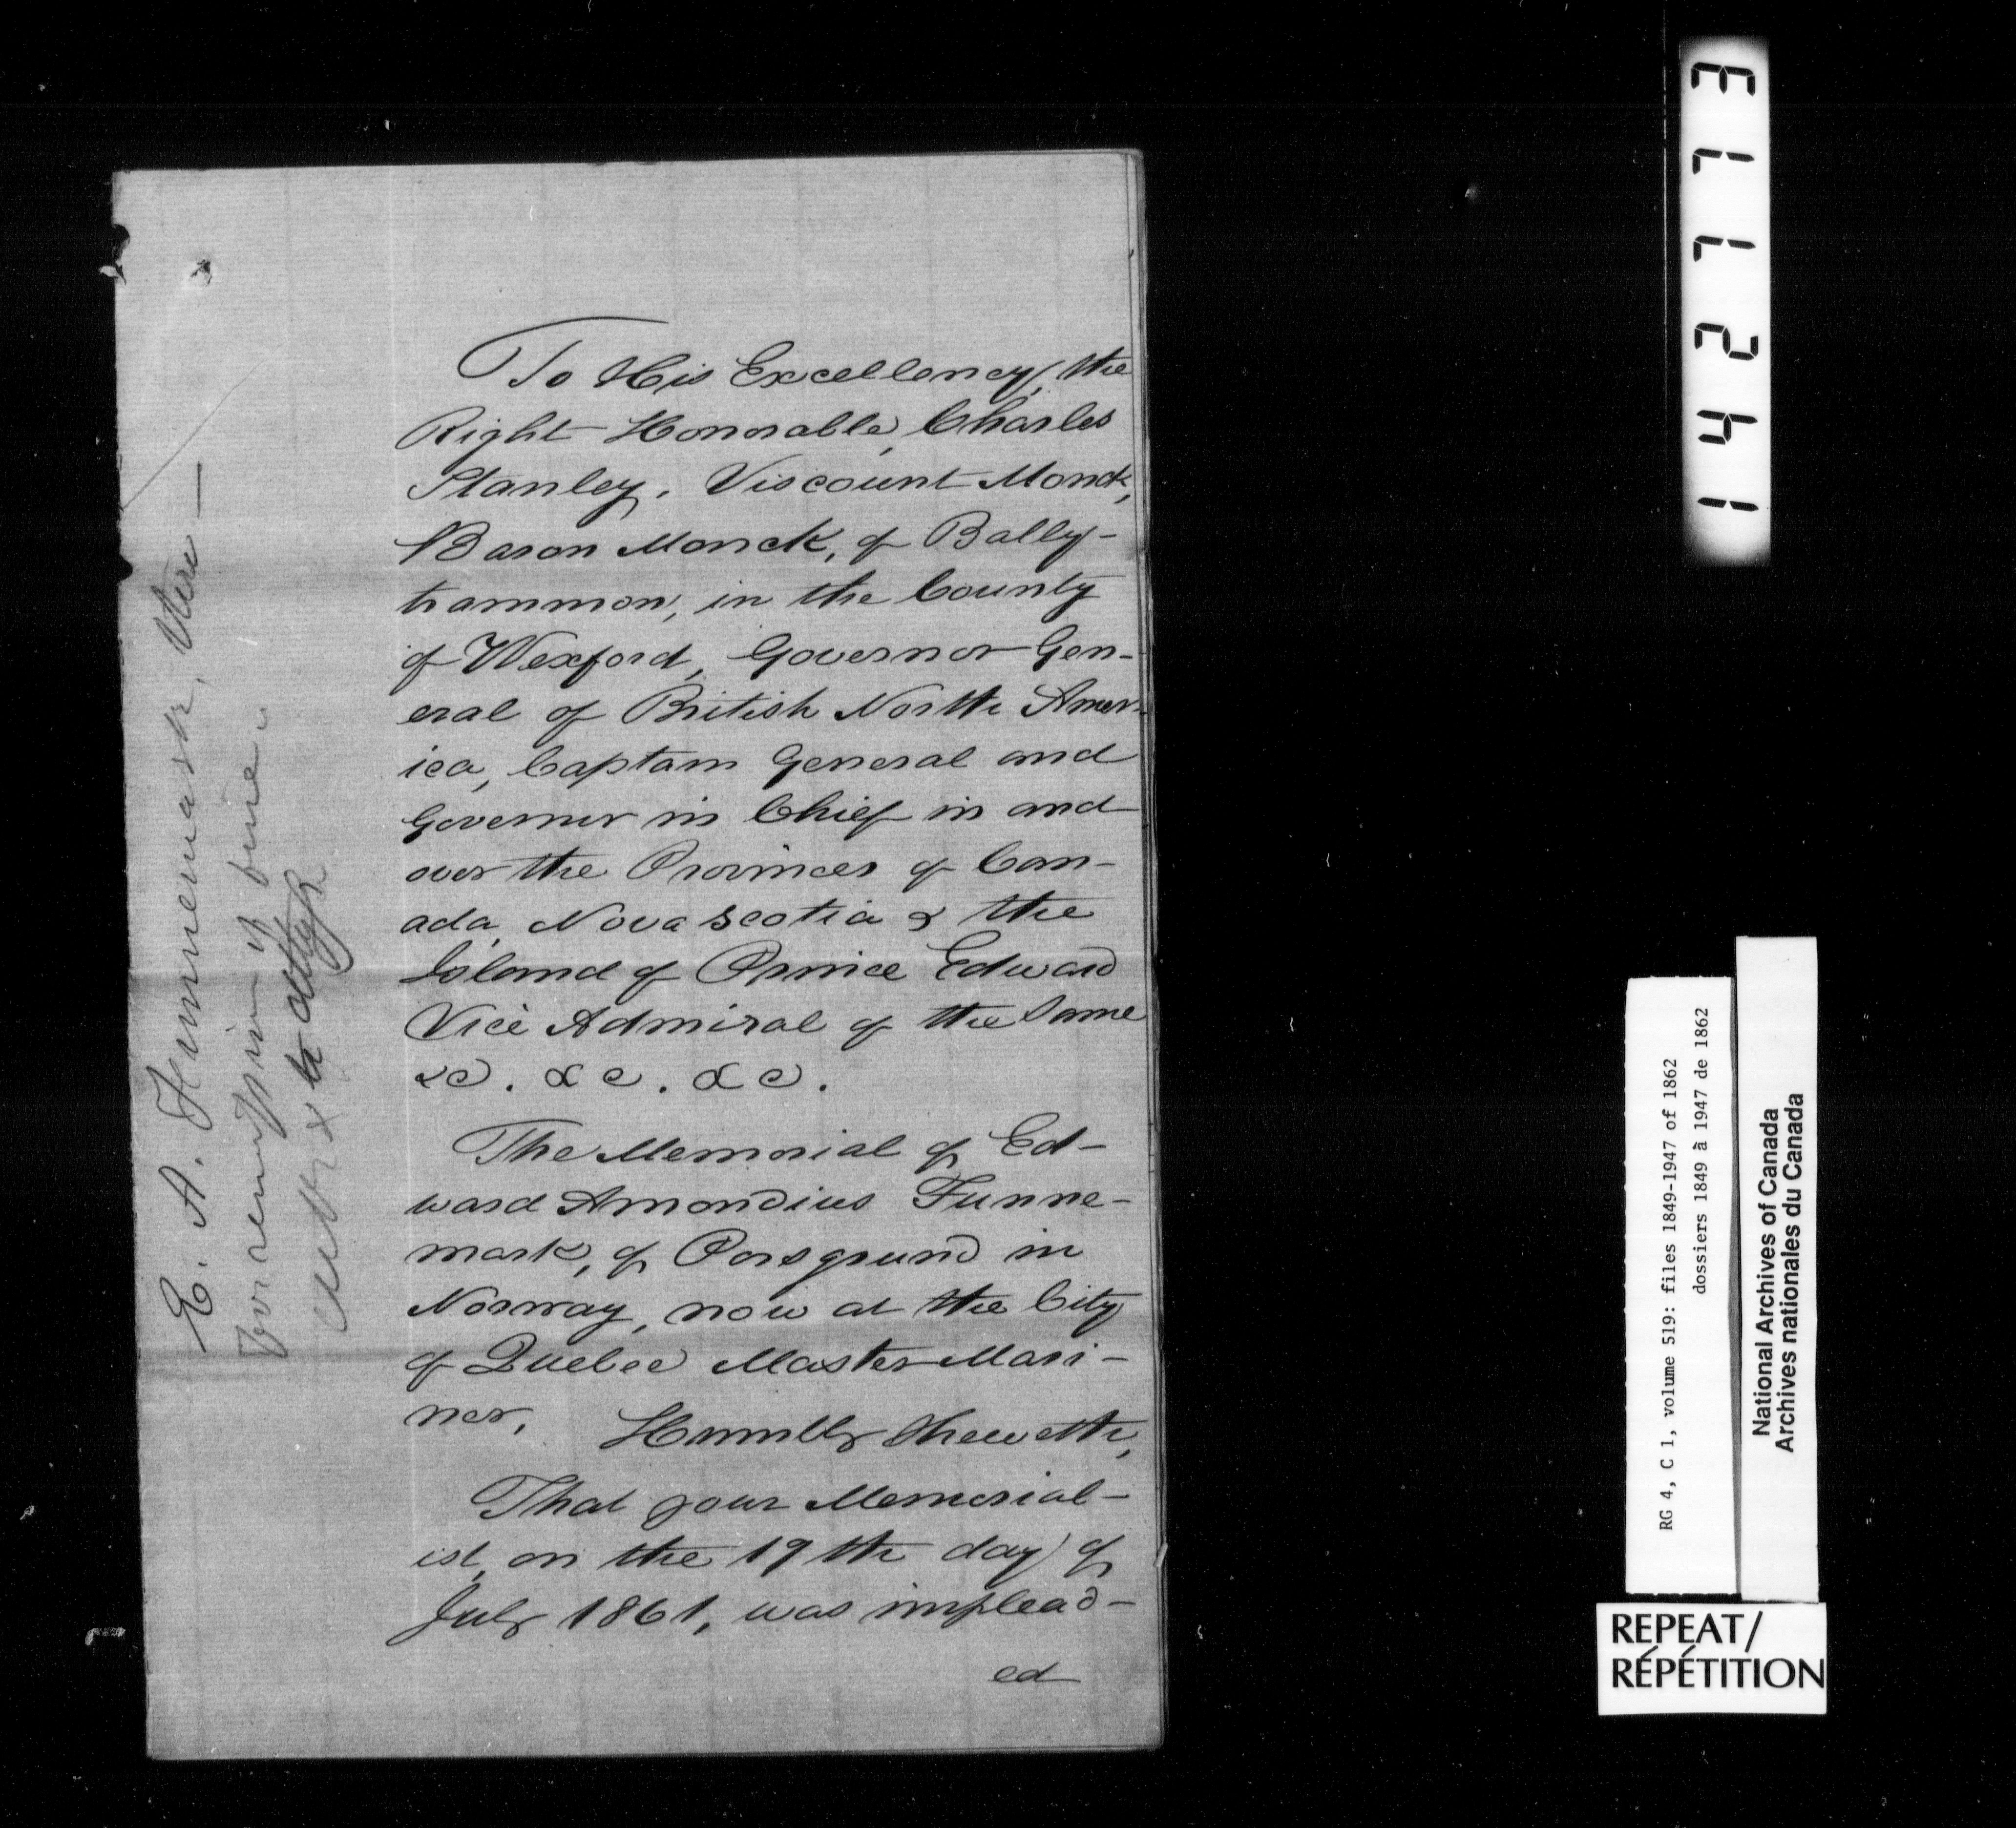 To His Excellency, the
Right Honorable, Charles
Stanley, Viscount Monck,
Baron Monck, of Bally-
trammon, in the County
of Wexford, Governor Gen-
eral of British North Amer-
ica, Captain General and
Governor in Chief in and
over the Provinces of Can-
ada, Nova Scotia & the
Island of Prince Edward
Vice Admiral of the same
&c. &c. &c.
The Memorial of Ed-
ward Amondius Funne-
mark, of Porsgrund in
Norway, now at the City
of Quebec Master Mari-
ner,
Humbly Sheweth,
That your Memorial-
ist, on the 19th day of
July 1861, was implead-
ed
E. A. Funnemark,
For remission of fine.
142773
RG 4, C 1, volume 519: files 1849-1947 of 1862
dossiers 1849 à 1947 de 1862
National Archives of Canada
Archives nationales du Canada
REPEAT/
RÉPÉTITION